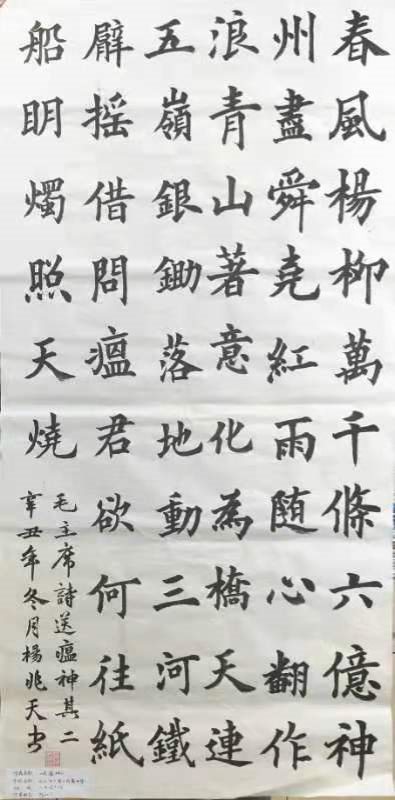 春風楊柳萬千條六億神
州盡舜堯紅雨随心翻作
浪青山著意化為橋天連
五嶺銀鋤落地動三河鐵
臂摇借問瘟君欲何往紙
船明燭照天燒
毛主席詩送瘟神其二
辛丑年冬月楊兆天书